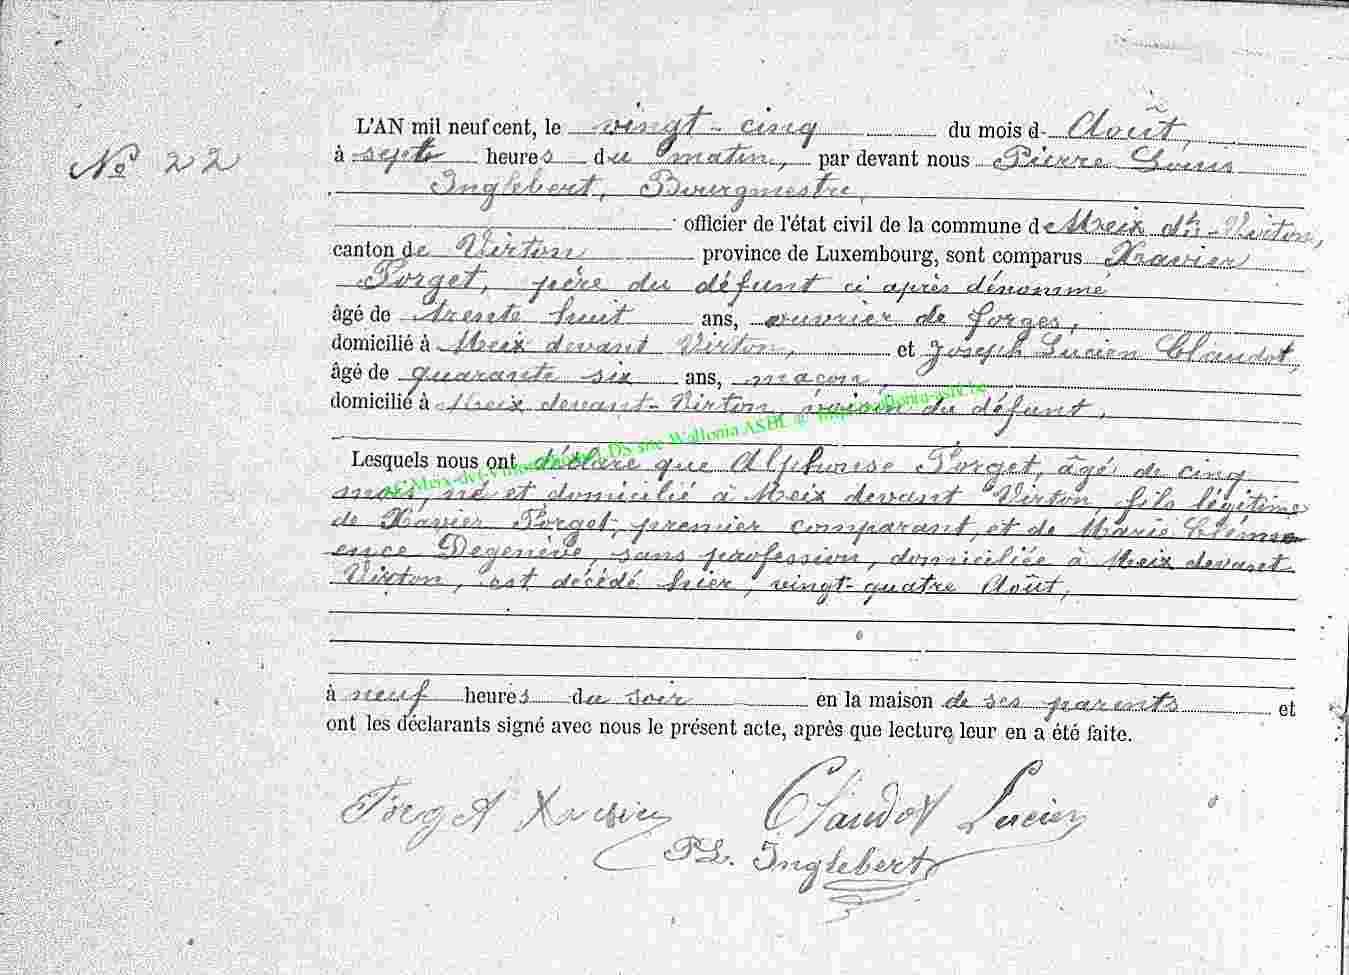 L'AN mil neuf cent, le vingt-cinq du mois d- Août,
N° 22
à sept heures du matin, par devant nous Pierre Louis
Inglebert, Bourgmestre,
officier de l'état civil de la commune de Meix dt-Virton,
canton de Virton province de Luxembourg, sont comparus Xravier
Forget, père du défunt ci après dénommé
âgé de trente huit ans, ouvrier de forges,
domicilié à Meix devant Virton, et Joseph Lucien Claudot,
âgé de quarante six ans, maçon,
domicilié à Meix devant-Virton, voisin du défunt,
Lesquels nous ont déclaré que Alphonse Forget, âgé de cinq
mois, né et domicilié à Meix devant Virton, fils légitime
de Xavier Forget, premier comparant, et de Marie Clém
ence Degenève, sans profession, domiciliée à Meix devant
Virton, est décédé hier, vingt-quatre Août,
à neuf heures du soir en la maison de ses parents et
ont les déclarants signé avec nous le présent acte, après que lecture leur en a été faite.
Forget Xavier Claudot Lucien
PL. Inglebert
site Wallonia ASBL @ http://wallonia-asbl.be